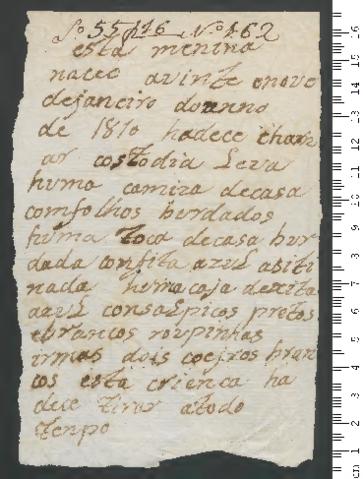 Nº 162
esta menina
naceo avinte enove
dejaneiro doanno
de 1810 hadece cham
ar costodia Leva
huma camiza decasa
comfolhos burdados
huma toca decasa bur
dada comfita azul asiti
nada huma dexita
azul consalpicos pretos
ebrancos roupinhas
irmas dois coeiros bran
cos esta crienca ha
dece tirar atodo
tenpo